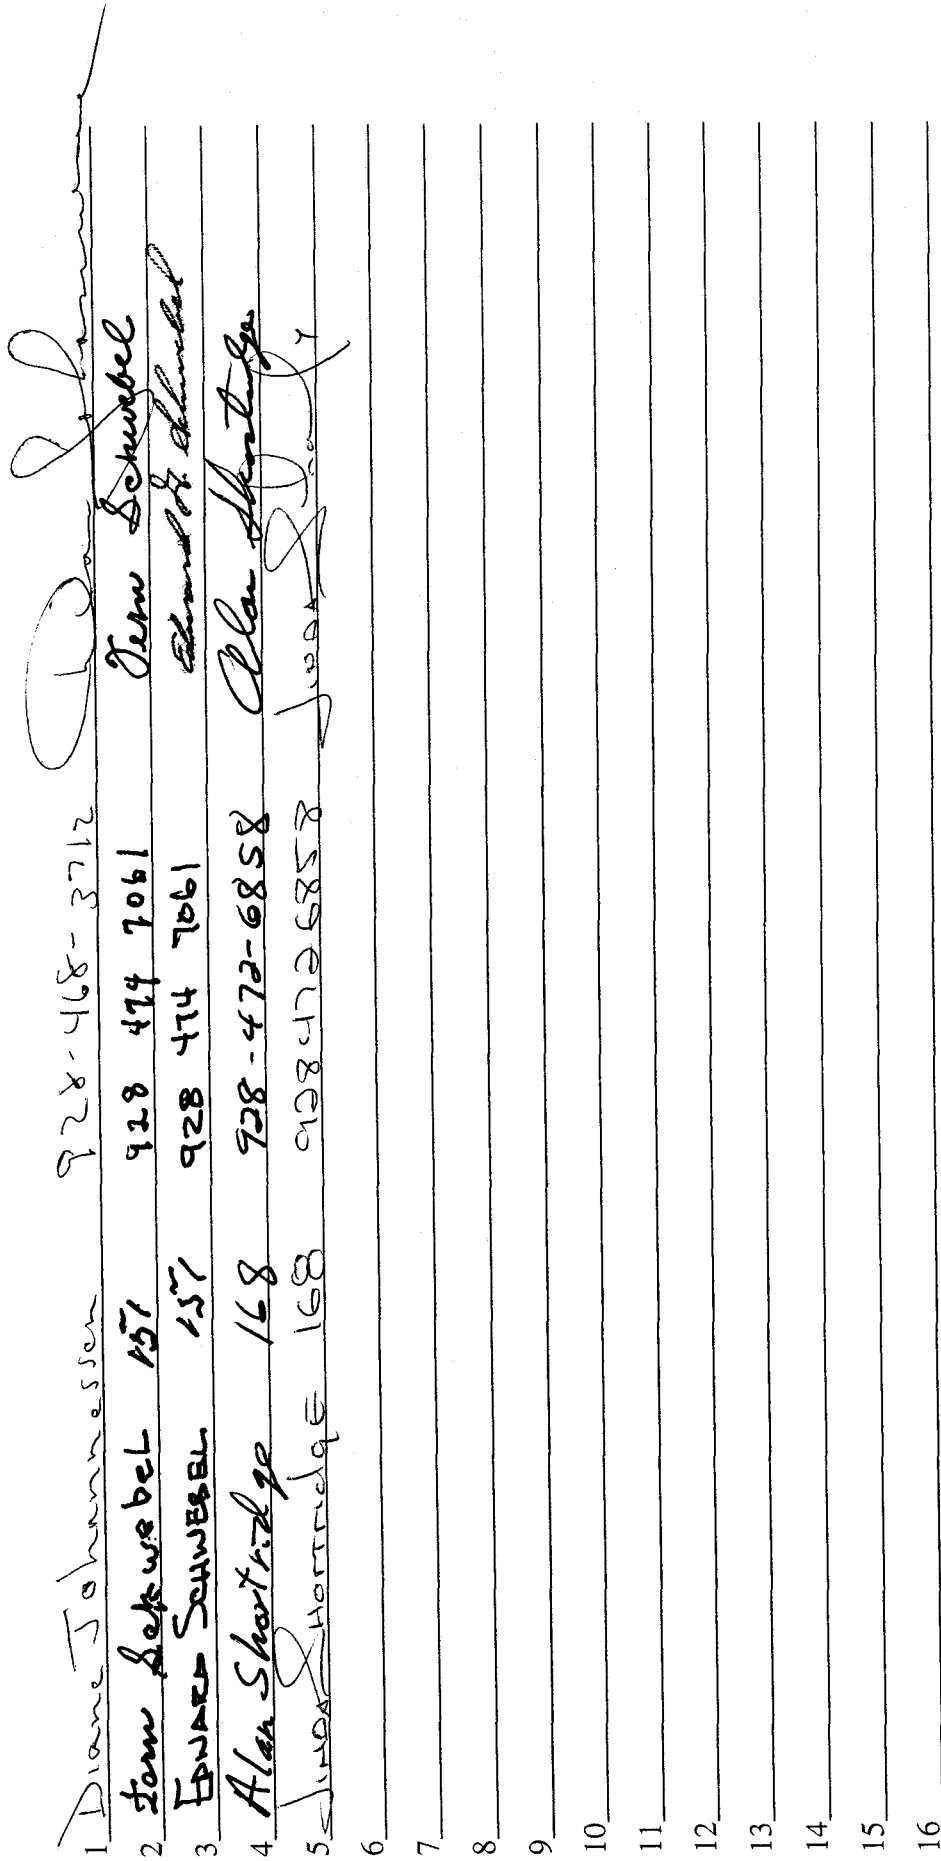 1 Diane Johannessen 928-468-3712
2 Schwebel 157 928 474 7061 Schwebel
3 EDWARD SCHWEBEL 157 928 474 7061 Edward Schwebel
4 Alan Shortridge 168 928-472-6858 Alan Shortridge
5 LINDA SHORTRIDGE 168 928 472 6858 Linda
6
7
8
9
10
11
12
13
14
15
16